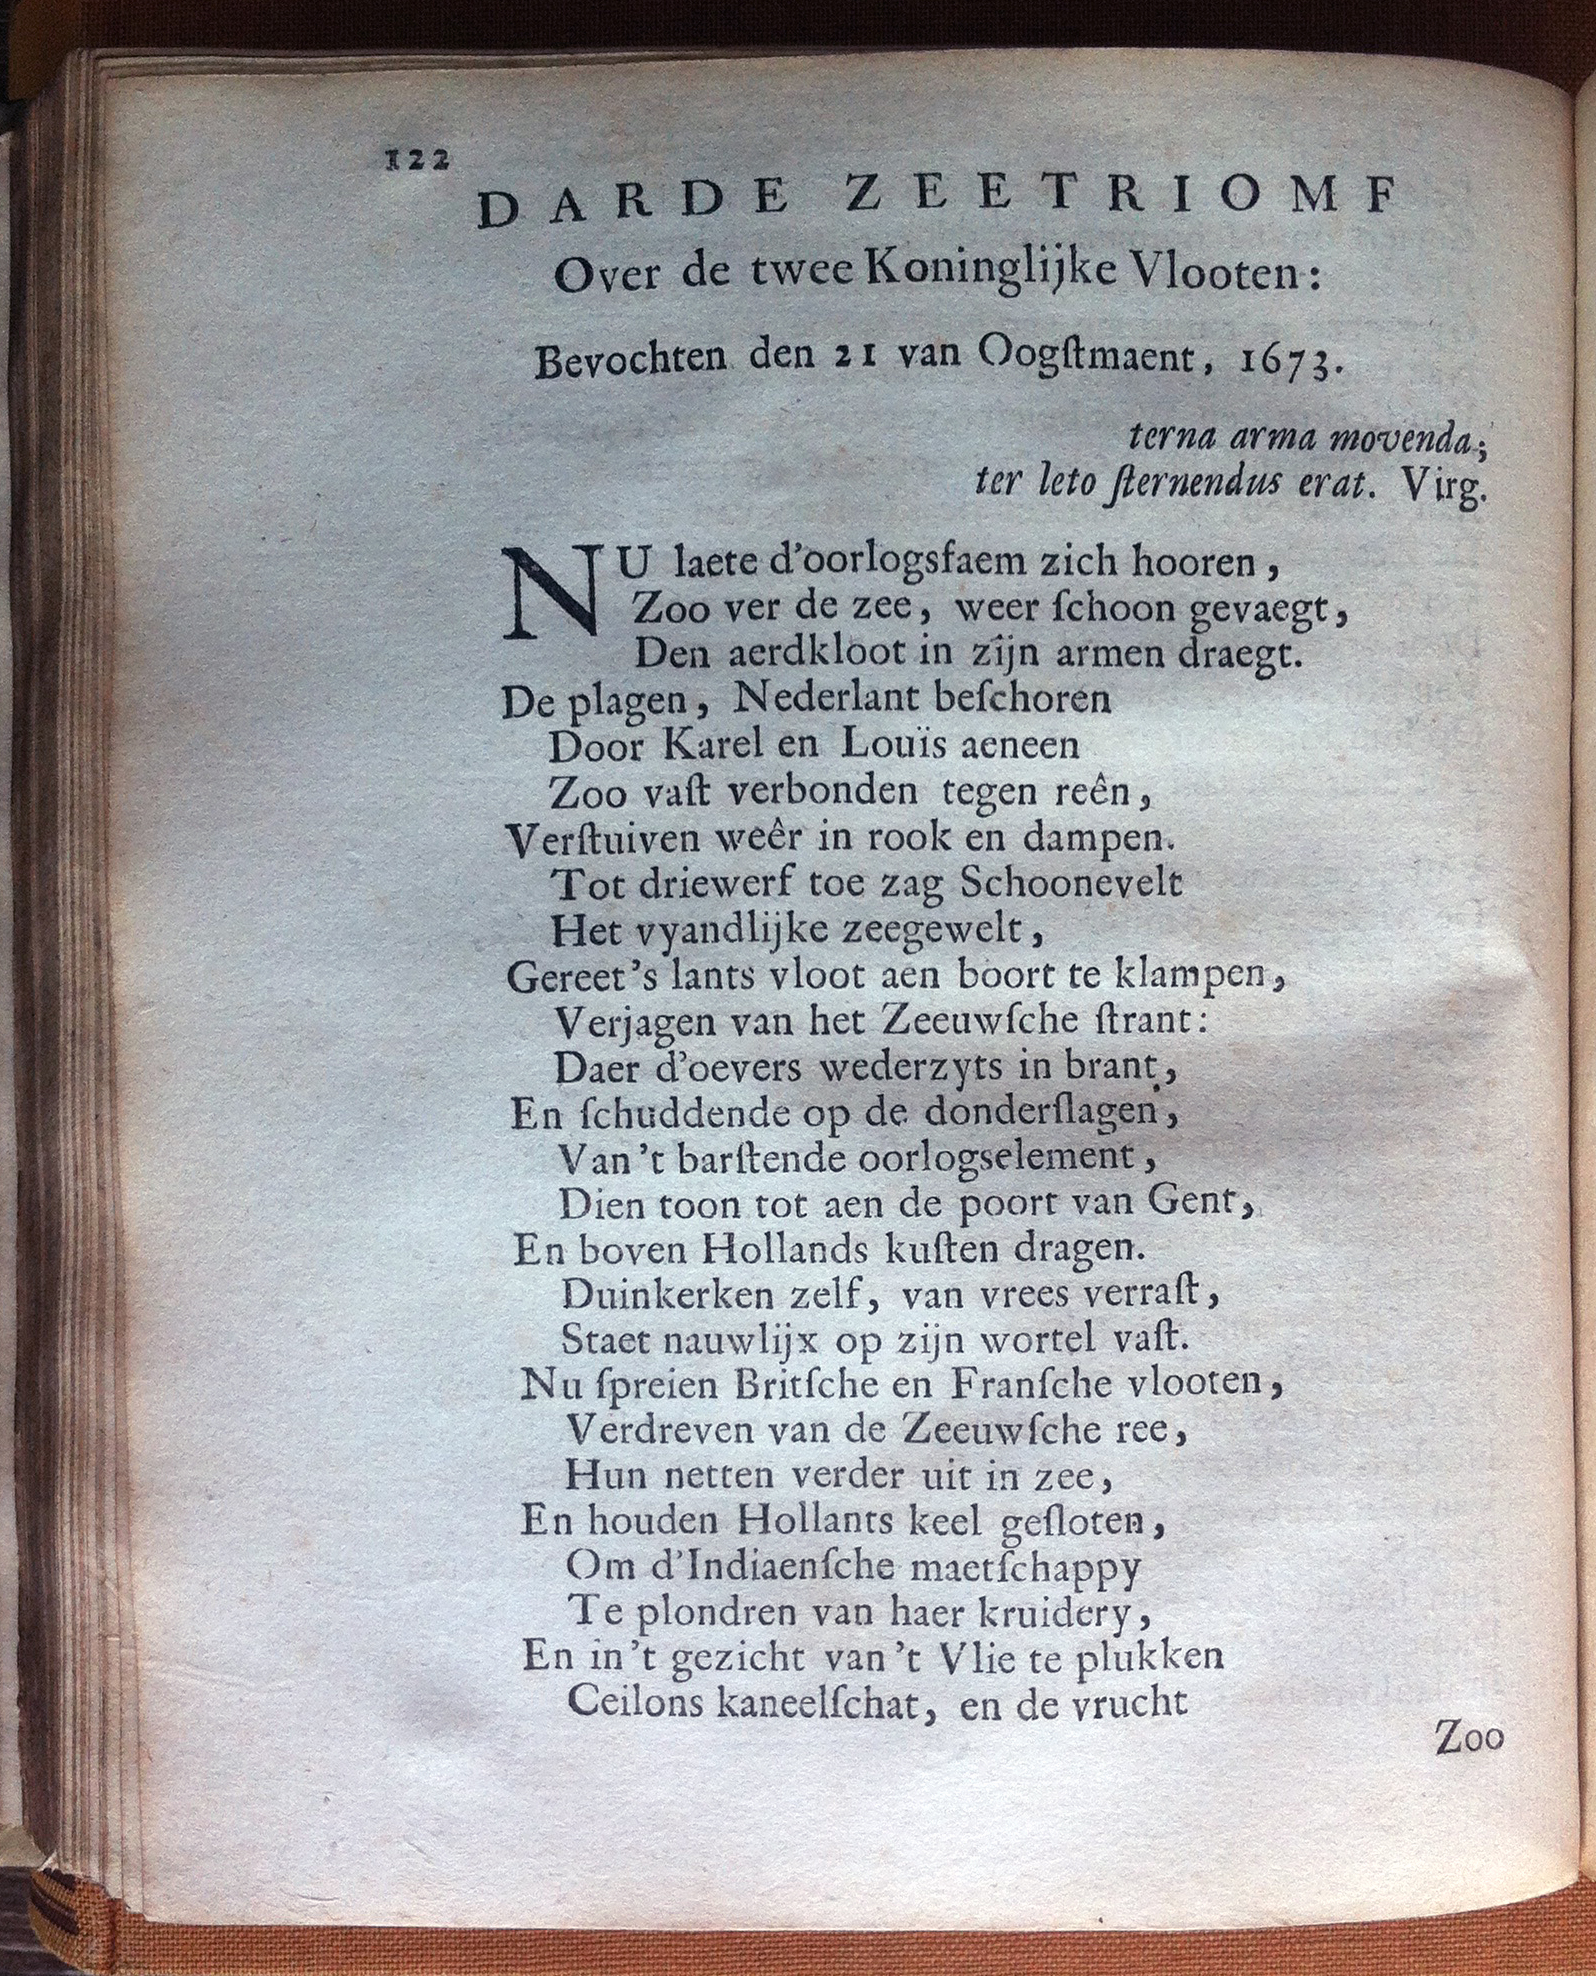 122
DARDE ZEETRIOMF
Over de twee Koninglijke Vlooten:
Bevochten den 21 van Oogſtmaent, 1673.
terna arma movenda;
ter leto ſternendus erat. Virg.
NU laete d'oorlogsfaem zich hooren,
Zoo ver de zee, weer ſchoon gevaegt,
Den aerdkloot in zijn armen draegt.
De plagen, Nederlant beſchoren
Door Karel en Louïs aeneen
Zoo vaſt verbonden tegen reên,
Verſtuiven weêr in rook en dampen.
Tot driewerf toe zag Schoonevelt
Het vyandlijke zeegewelt,
Gereet 's lants vloot aen boort te klampen,
Verjagen van het Zeeuwſche ſtrant:
Daer d'oevers wederzyts in brant,
En ſchuddende op de donderſlagen,
Van 't barſtende oorlogselement,
Dien toon tot aen de poort van Gent,
En boven Hollands kuſten dragen.
Duinkerken zelf, van vrees verraſt,
Staet nauwlijx op zijn wortel vaſt.
Nu ſpreien Britſche en Franſche vlooten,
Verdreven van de Zeeuwſche ree,
Hun netten verder uit in zee,
En houden Hollants keel geſloten,
Om d'Indiaenſche maetſchappy
Te plondren van haer kruidery,
En in 't gezicht van 't Vlie te plukken
Ceilons kaneelſchat, en de vrucht
Zoo